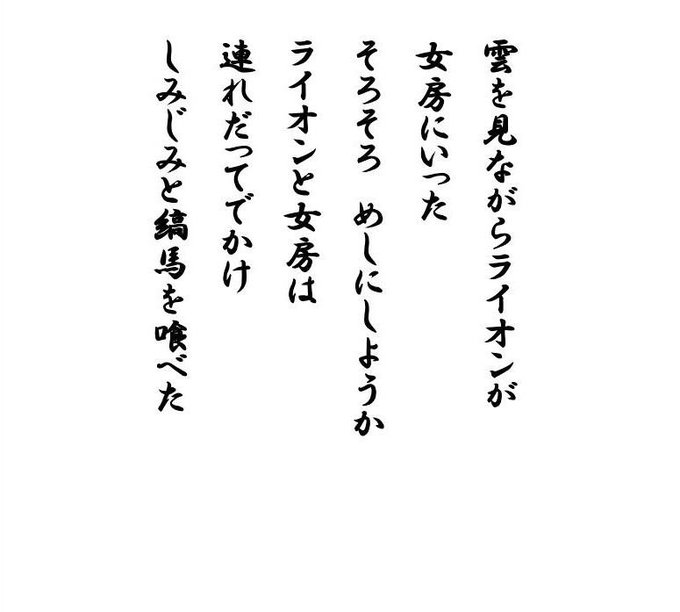 雲を見ながらライオンが
女房にいった
そろそろ　めしにしようか
ライオンと女房は
連れだってでかけ
しみじみと縞馬を喰べた